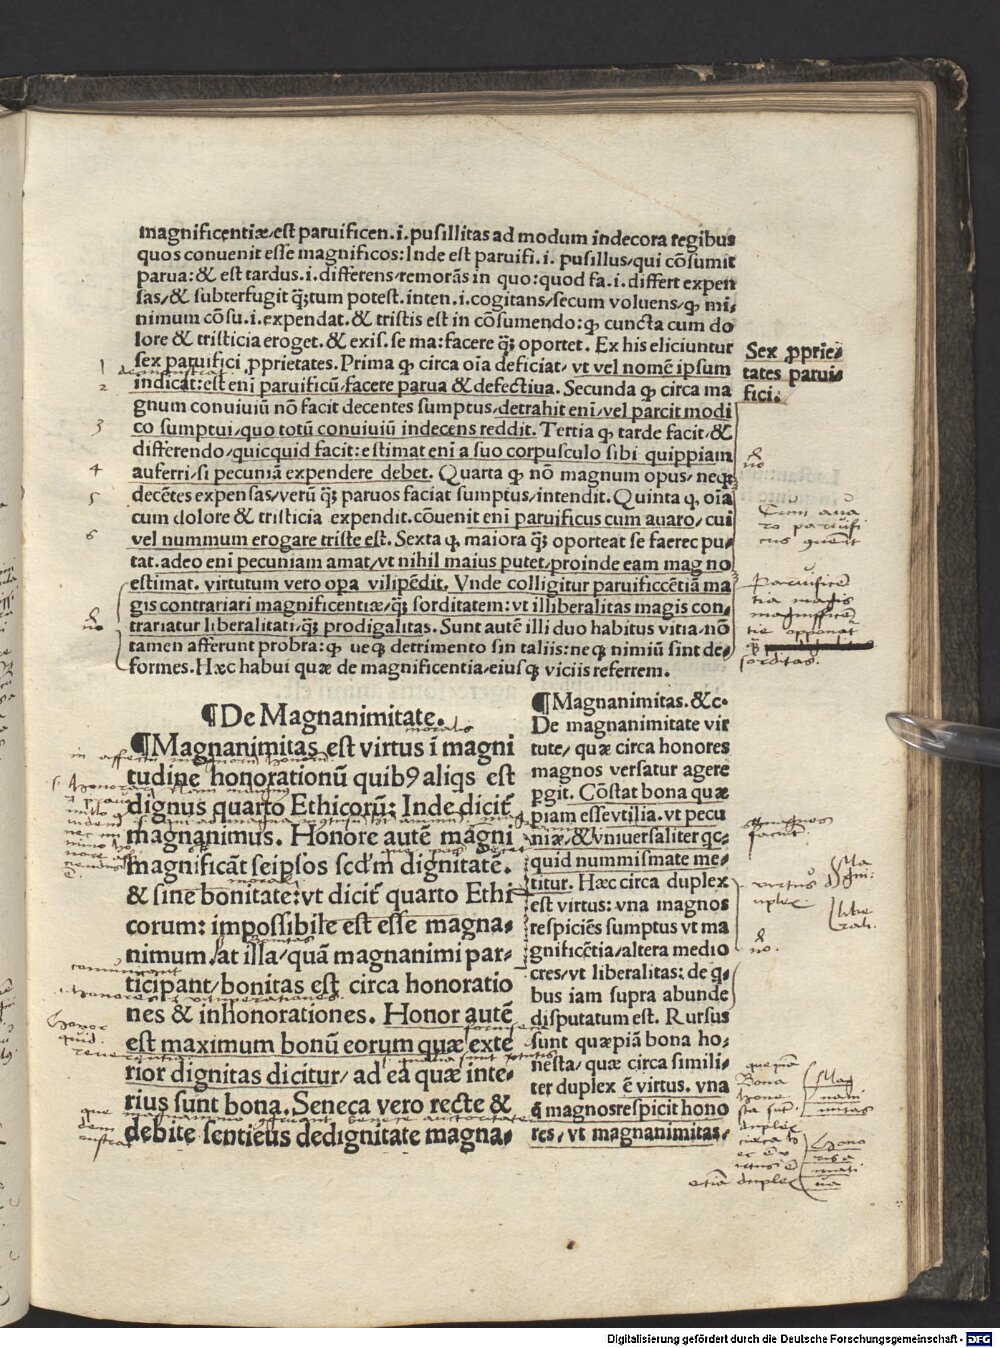 magnificentiæ/est paruificen.i.pusillitas ad modum indecora regibus
quos conuenit esse magnificos:Inde est paruifi.i. pusillus/qui cōsumit
parua:& est tardus.i.differens/remorās in quo:quod fa.i.differt expen
sas/& subterfugit q̃;tum potest.inten.i.cogitans/secum voluens/ꝙ mi⸗
nimum cōsu.i.expendat.& tristis est in cōsumendo:ꝙ cuncta cum do
lore & tristicia eroget.& exis.se ma:facere q̃; oportet. Ex his eliciuntur
sex paruifici ꝓprietates. Prima ꝙ circa oīa deficiat/ vt vel nomē ipsum
indicat:est eni paruificū/facere parua & defectiua. Secunda ꝙ circa ma
gnum conuiuiū nō facit decentes sumptus/detrahit eni/vel parcit modi
co sumptui/quo totū conuiuiū indecens reddit. Tertia ꝙ tarde facit/&
differendo/quicquid facit:estimat eni a suo corpusculo sibi quippiam
auferri/si pecuniā expendere debet. Quarta ꝙ nō magnum opus/neqꝫ
decētes expensas/verū q̃; paruos faciat sumptus/intendit. Quinta ꝙ oīa
cum dolore & tristicia expendit.cōuenit eni paruificus cum auaro/cui
vel nummum erogare triste est. Sexta ꝙ maiora q̃; oporteat se faerec pu⸗
tat.adeo eni pecuniam amat/vt nihil maius putet/proinde eam magno
estimat. virtutum vero opa vilipēdit. Vnde colligitur paruificcētiā ma
gis contrariari magnificentiæ/q̃; sorditatem:vt illiberalitas magis con⸗
trariatur liberalitati/q̃; prodigalitas. Sunt autē illi duo habitus vitia/nō
tamen afferunt probra:ꝙ ueqꝫ detrimento sin taliis:neqꝫ nimiū sint de⸗
formes.Hæc habui quæ de magnificentia/eiusqꝫ viciis referrem.
Sex ꝓprie⸗
tates parui⸗
fici.
1
2
3
4
5
6
¶De Magnanimitate.
¶Magnanimitas est virtus ī magni
tudine honorationū quib9 aliqs est
dignus quarto Ethicorū: Inde dicit̄
magnanimus. Honore autē magni
magnificāt seipsos scd'm dignitatē.
& sine bonitate:vt dicit̄ quarto Ethi
corum: impossibile est esse magna⸗
nimum.at illa/quā magnanimi par⸗
ticipant/bonitas est circa honoratio
nes & inhonorationes. Honor autē
est maximum bonū eorum quæ exte
rior dignitas dicitur/ ad ea quæ inte⸗
rius sunt bona. Seneca vero recte &
debite sentieus dedignitate magna⸗
¶Magnanimitas.&c.
De magnanimitate vir
tute/ quæ circa honores
magnos versatur agere
ꝑgit. Cōstat bona quæ
piam esse vtilia.vt pecu
niæ/& vniuersaliter qc⸗
quid nummismate me⸗
titur. Hæc circa duplex
est virtus: vna magnos
respiciēs sumptus vt ma
gnificētia/altera medio
cres/vt liberalitas: de q̄⸗
bus iam supra abunde
disputatum est. Rursus
sunt quæpiā bona ho⸗
nesta/ quæ circa simili⸗
ter duplex ē virtus. vna
q̄ magnos respicit hono
res/ vt magnanimitas⸗
Cum aua
ro paruifi
cus
Paruificē
tia magis
magnificē
tie opponat
sorditas.
magnos
virtus
duplex
Ma
gni.
libe
rali.
Bona
hone
sta sūt
duplex
Mag
nani
mitas
Hono
etiā duplex
Digitalisierung gefördert durch die Deutsche Forschungsgemeinschaft - DFG